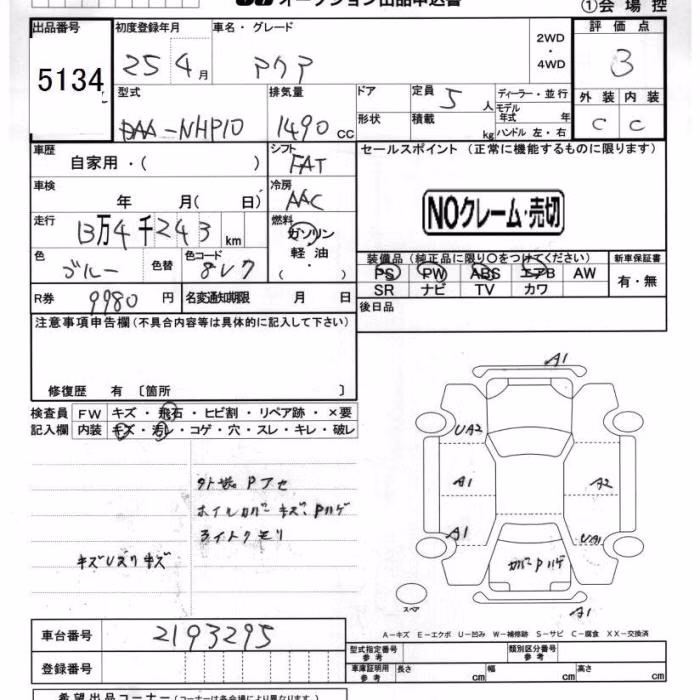 オークション出品申込書
①会場控
出品番号 初度登録年月 車名・グレード 2WD・4WD 評価点
5134 25 4月 アクア 3
型式 排気量 ドア 定員 5人 ディーラー・並行 外装 内装
DAA-NHP10 1490cc 形状 積載 kg モデル年式 年 ハンドル 左・右 C C
車歴 自家用・( ) シフト FAT セールスポイント (正常に機能するものに限ります)
車検 年 月( 日) 冷房 AAC
NOクレーム・売切
走行 13万4千243km 燃料 ガソリン 軽油 ・( )
色 ブルー 色替 色コード 8V7
装備品 (純正品に限り○をつけてください) 新車保証書
PS PW ABS エアB AW 有・無
SR ナビ TV カワ
R券 9980円 名変通知期限 月 日 後日品
注意事項申告欄 (不具合内容等は具体的に記入して下さい)
修復歴 有 〔箇所 〕
検査員 FW キズ・飛石・ヒビ割・リペア跡・×要
記入欄 内装 キズ・汚レ・コゲ・穴・スレ・キレ・破レ
外装Pアセ
ホイルカバーキズ、Pハゲ
ライトクモリ
キズUスリキズ
A1
UA2
A1 A2
A1 UA1
カバーPハゲ
スペア
A1
A-キズ E-エクボ U-凹み W-補修跡 S-サビ C-腐食 XX-交換済
車台番号 2193295
型式指定番号 参考 類別区分番号 参考
登録番号 車庫証明用 参考 長さ cm 幅 cm 高さ cm
希望出品コーナー (コーナーは各会場により異なります。)